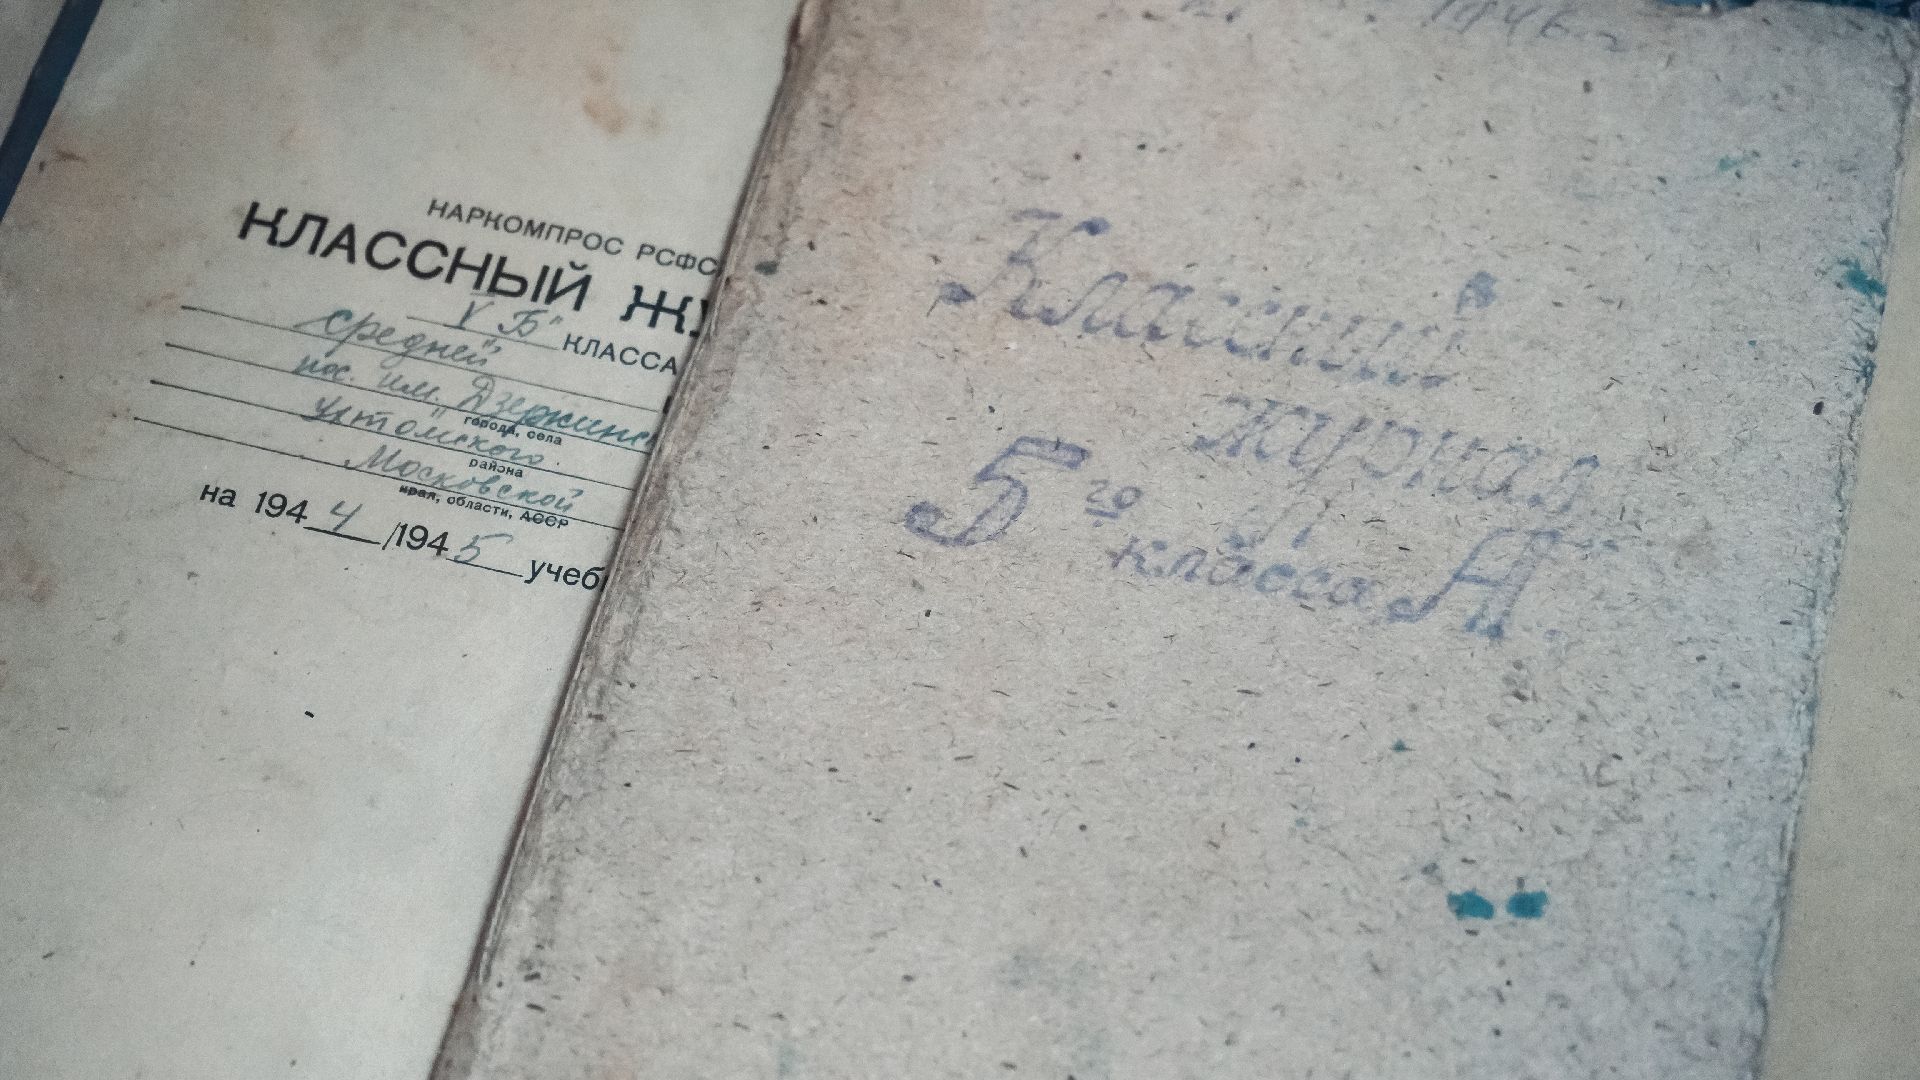 НАРКОМПРОС РСФС
КЛАССНЫЙ ЖУ
V "Б" КЛАССА
средней
пос. им. Дзержинс
города, села
Ухтомского
района
Московской
края, области, АССР
на 1944/1945 учеб
1946 г
Классный
журнал
5го класса "А"